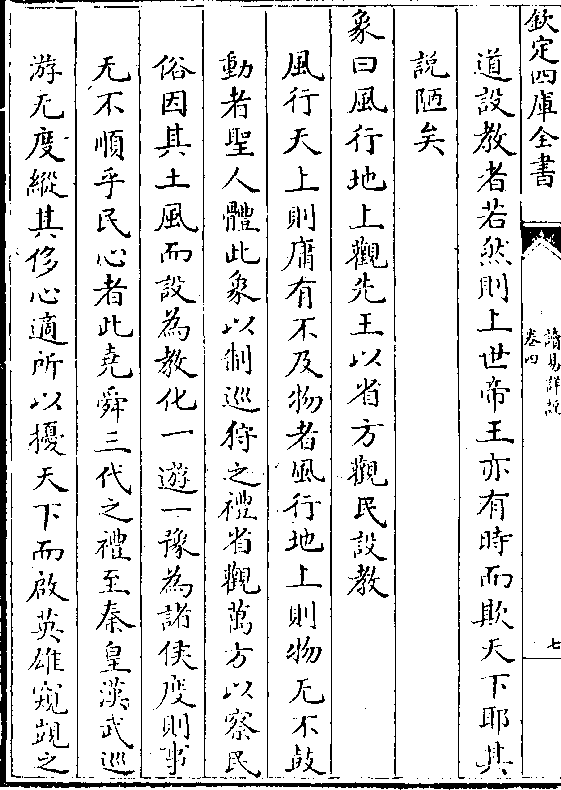 欽定四庫全書
讀易詳說
卷四
七
道設教者若然則上世帝王亦有時而欺天下耶其
說陋矣
象曰風行地上觀先王以省方觀民設教
風行天上則庸有不及物者風行地上則物无不鼓
動者聖人體此象以制巡狩之禮省觀萬方以察民
俗因其土風而設為教化一遊一豫為諸侯度則事
无不順乎民心者此堯舜三代之禮至秦皇漢武巡
游无度縱其侈心適所以擾天下而啟英雄窺覬之